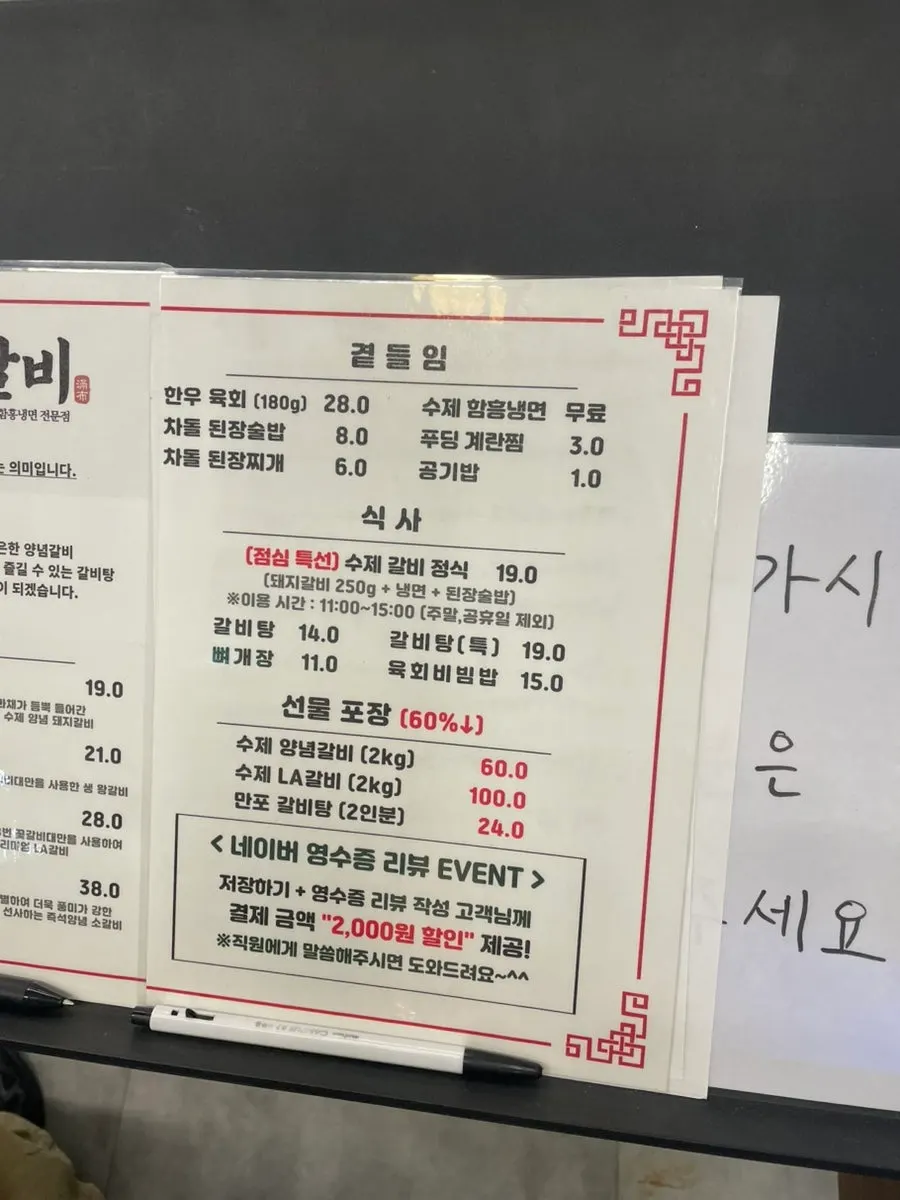 갈비
함흥냉면 전문점
의미입니다.
양념갈비
즐길 수 있는 갈비탕
이 되겠습니다.
19.0
들어간
수제 양념 돼지갈비
21.0
사용한 생 왕갈비
28.0
꽃갈비대만을 사용하여
LA갈비
38.0
더욱 풍미가 강한
선사하는 즉석양념 소갈비
곁들임
한우 육회 (180g) 28.0
차돌 된장술밥 8.0
차돌 된장찌개 6.0
수제 함흥냉면 무료
푸딩 계란찜 3.0
공기밥 1.0
식사
(점심 특선) 수제 갈비 정식 19.0
(돼지갈비 250g + 냉면 + 된장술밥)
※이용 시간 : 11:00~15:00 (주말,공휴일 제외)
갈비탕 14.0 갈비탕(특) 19.0
뼈개장 11.0 육회비빔밥 15.0
선물 포장 (60%↓)
수제 양념갈비 (2kg) 60.0
수제 LA갈비 (2kg) 100.0
만포 갈비탕 (2인분) 24.0
< 네이버 영수증 리뷰 EVENT >
저장하기 + 영수증 리뷰 작성 고객님께
결제 금액 "2,000원 할인" 제공!
※직원에게 말씀해주시면 도와드려요~^^
가시
은
세요